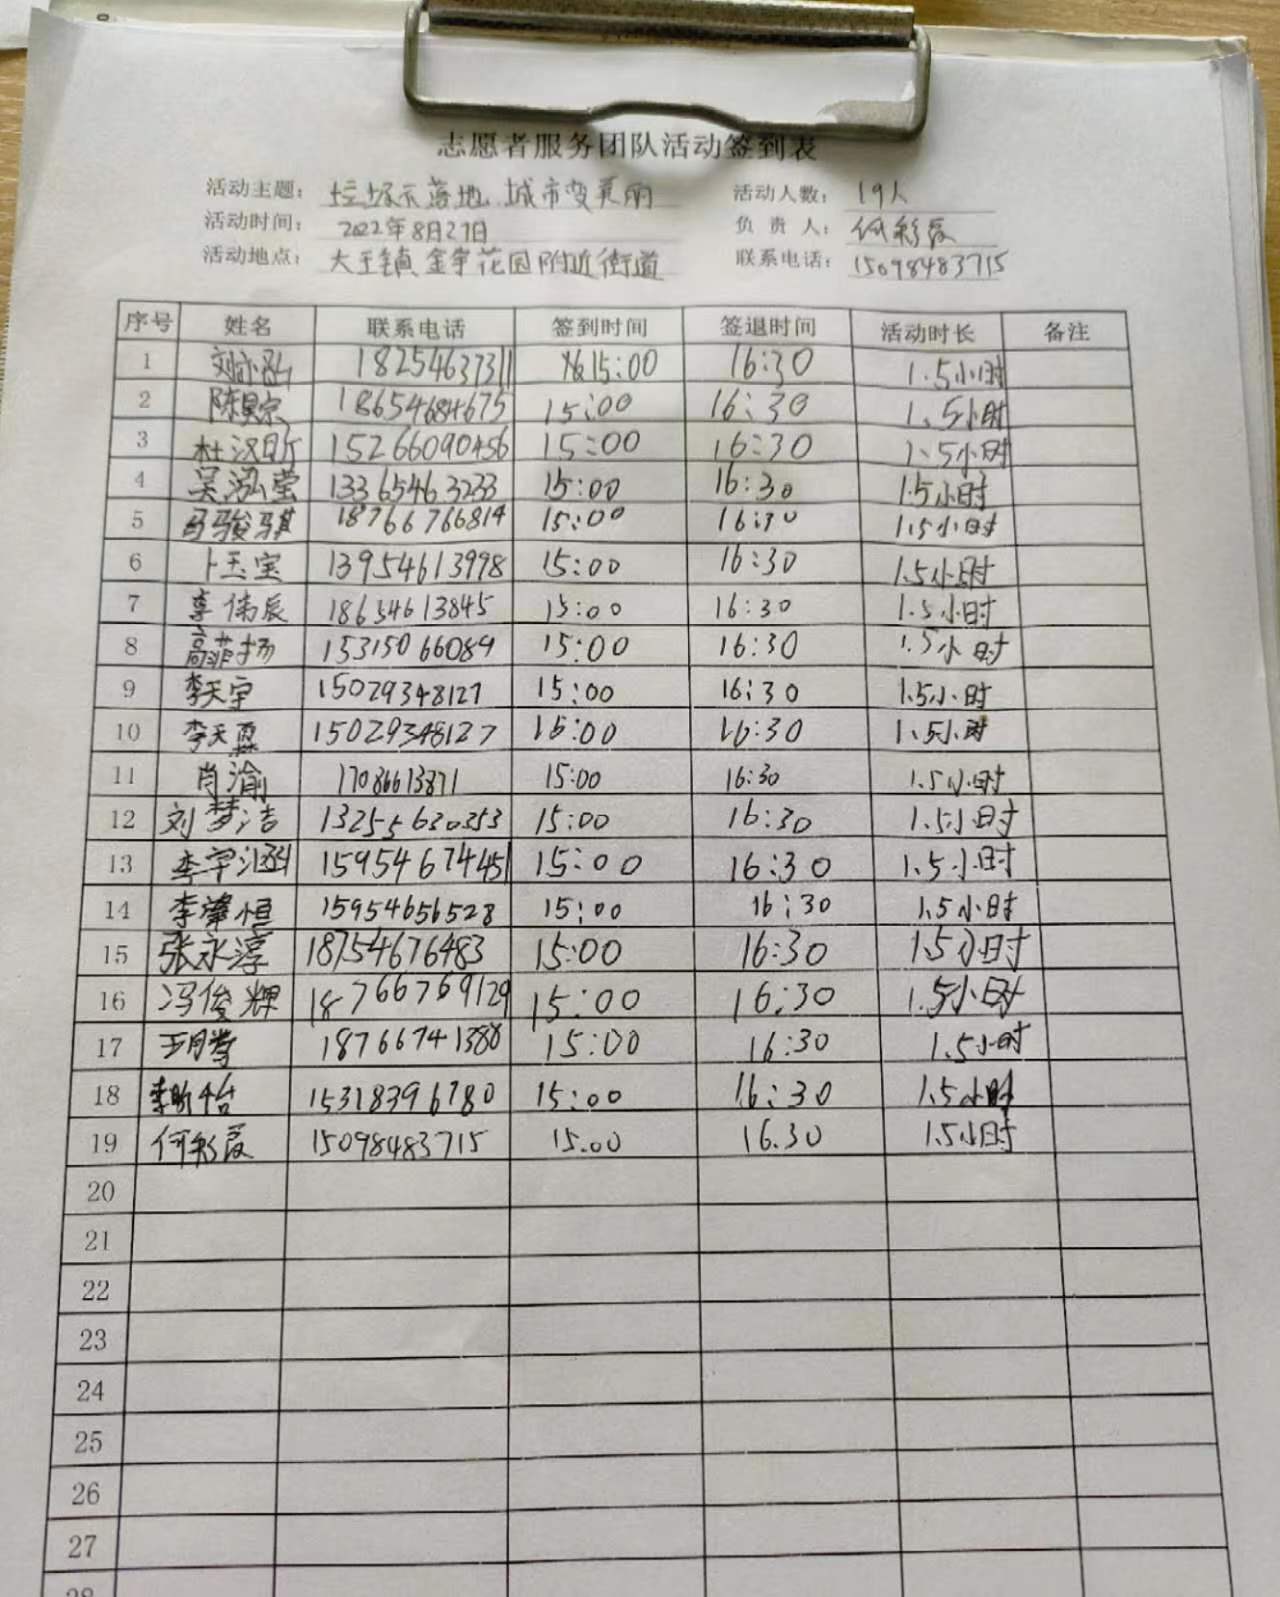 志愿者服务团队活动签到表
活动主题: 垃圾不落地 城市变美丽 活动人数: 19人
活动时间: 2022年8月27日 负责人: 何彩霞
活动地点: 大王镇金宇花园附近街道 联系电话: 15098483715
序号 姓名 联系电话 签到时间 签退时间 活动时长 备注
1 18254637311 15:00 16:30 1.5小时
2 18654684675 15:00 16:30 1.5小时
3 15266090456 15:00 16:30 1.5小时
4 吴泓莹 13365463233 15:00 16:30 1.5小时
5 马骏骐 18766766814 15:00 16:30 1.5小时
6 卜玉宝 13954613998 15:00 16:30 1.5小时
7 李伟辰 18654613845 15:00 16:30 1.5小时
8 高菲扬 15315066089 15:00 16:30 1.5小时
9 李天宇 15029348127 15:00 16:30 1.5小时
10 李天 15029348127 15:00 16:30 1.5小时
11 肖渝 17086613871 15:00 16:30 1.5小时
12 刘梦洁 13255630353 15:00 16:30 1.5小时
13 李宇涵 15954674451 15:00 16:30 1.5小时
14 李肇恒 15954656528 15:00 16:30 1.5小时
15 张永淳 18754676483 15:00 16:30 1.5小时
16 冯俊辉 18766769129 15:00 16:30 1.5小时
17 18766741388 15:00 16:30 1.5小时
18 15318396780 15:00 16:30 1.5小时
19 何彩霞 15098483715 15.00 16.30 1.5小时
20
21
22
23
24
25
26
27
28